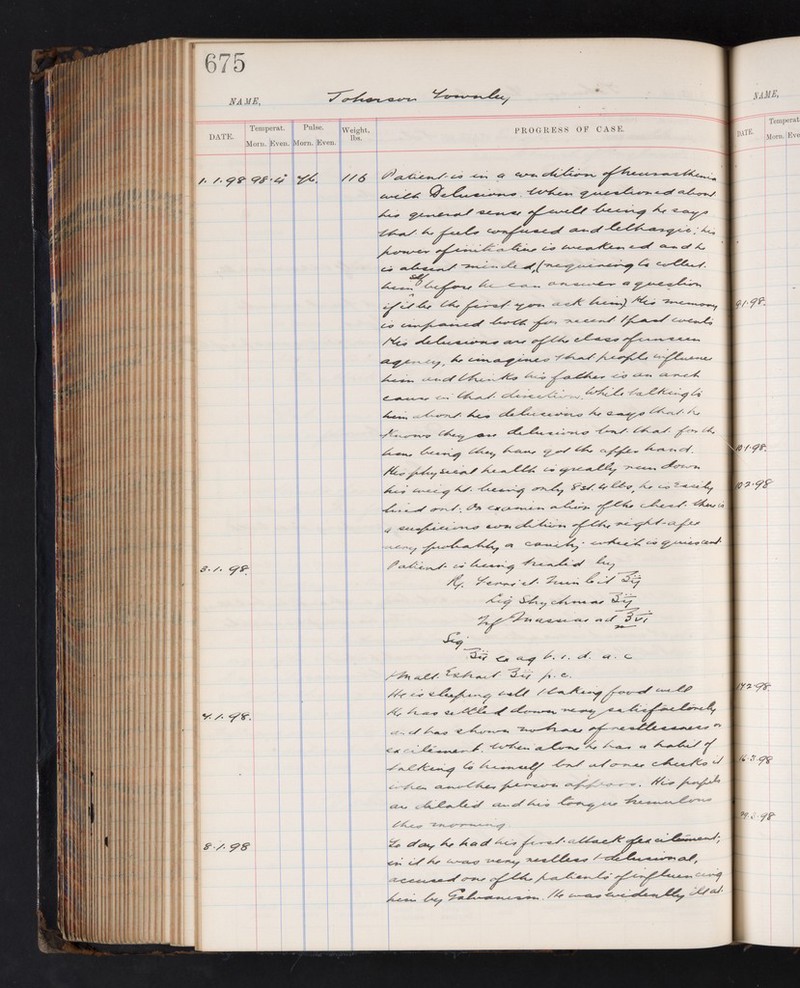 675
NAME, Johnson Townley
DATE. Temperat. Morn. Even. Pulse. Morn. Even. Weight, lbs. PROGRESS OF CASE.
1. 1. 98 98.4 76. 116 Patient is in a condition of neurasthenia
with Delusions. When questioned about
his general sense of well being he says
that he feels confused and lethargic; his
power of initiative is weakened and he
is absent minded, (requiring to collect
himself before he can answer a question
if it be the first you ask him) His memory
is impaired both for recent & past events
His delusions are of the class of unseen
agency, he imagines that people influence
him and thinks his father is an arch
cause in that direction. While talking to
him about his delusions he says that he
knows they are delusions but that for the
time being they have got the upper hand.
His physical health is greatly run down
his weight being only 8 st. 4 lbs, he is easily
tired out. On examination of the chest there is
a suspicious condition of the right apex
very probably a cavity which is quiescent
3. 1. 98. Patient is being treated by
R. Ferri et Quin Cit ʒij
Liq Strychninae ʒij
Inf Quassiae ad ℥vi
Sig
ʒii ex aq t. i. d. a. c
& Malt Extract ʒii p. c.
He is sleeping well & taking food well
4. 1. 98. He has settled down very satisfactorily
and has shown no traces of restlessness or
excitement. When alone he has a habit of
talking to himself but at once checks it
when another person appears. His pupils
are dilated and his tongue tremulous
this morning
8. 1. 98 To day he had his first attack of excitement;
in it he was very restless & delusional,
accused one of the patients of influencing
him by Galvanism. He was evidently ill at
NAME,
DATE. Temperat
Morn. Eve
9 1. 98.
10 1. 98.
10 2. 98
14 2. 98.
16. 3. 98